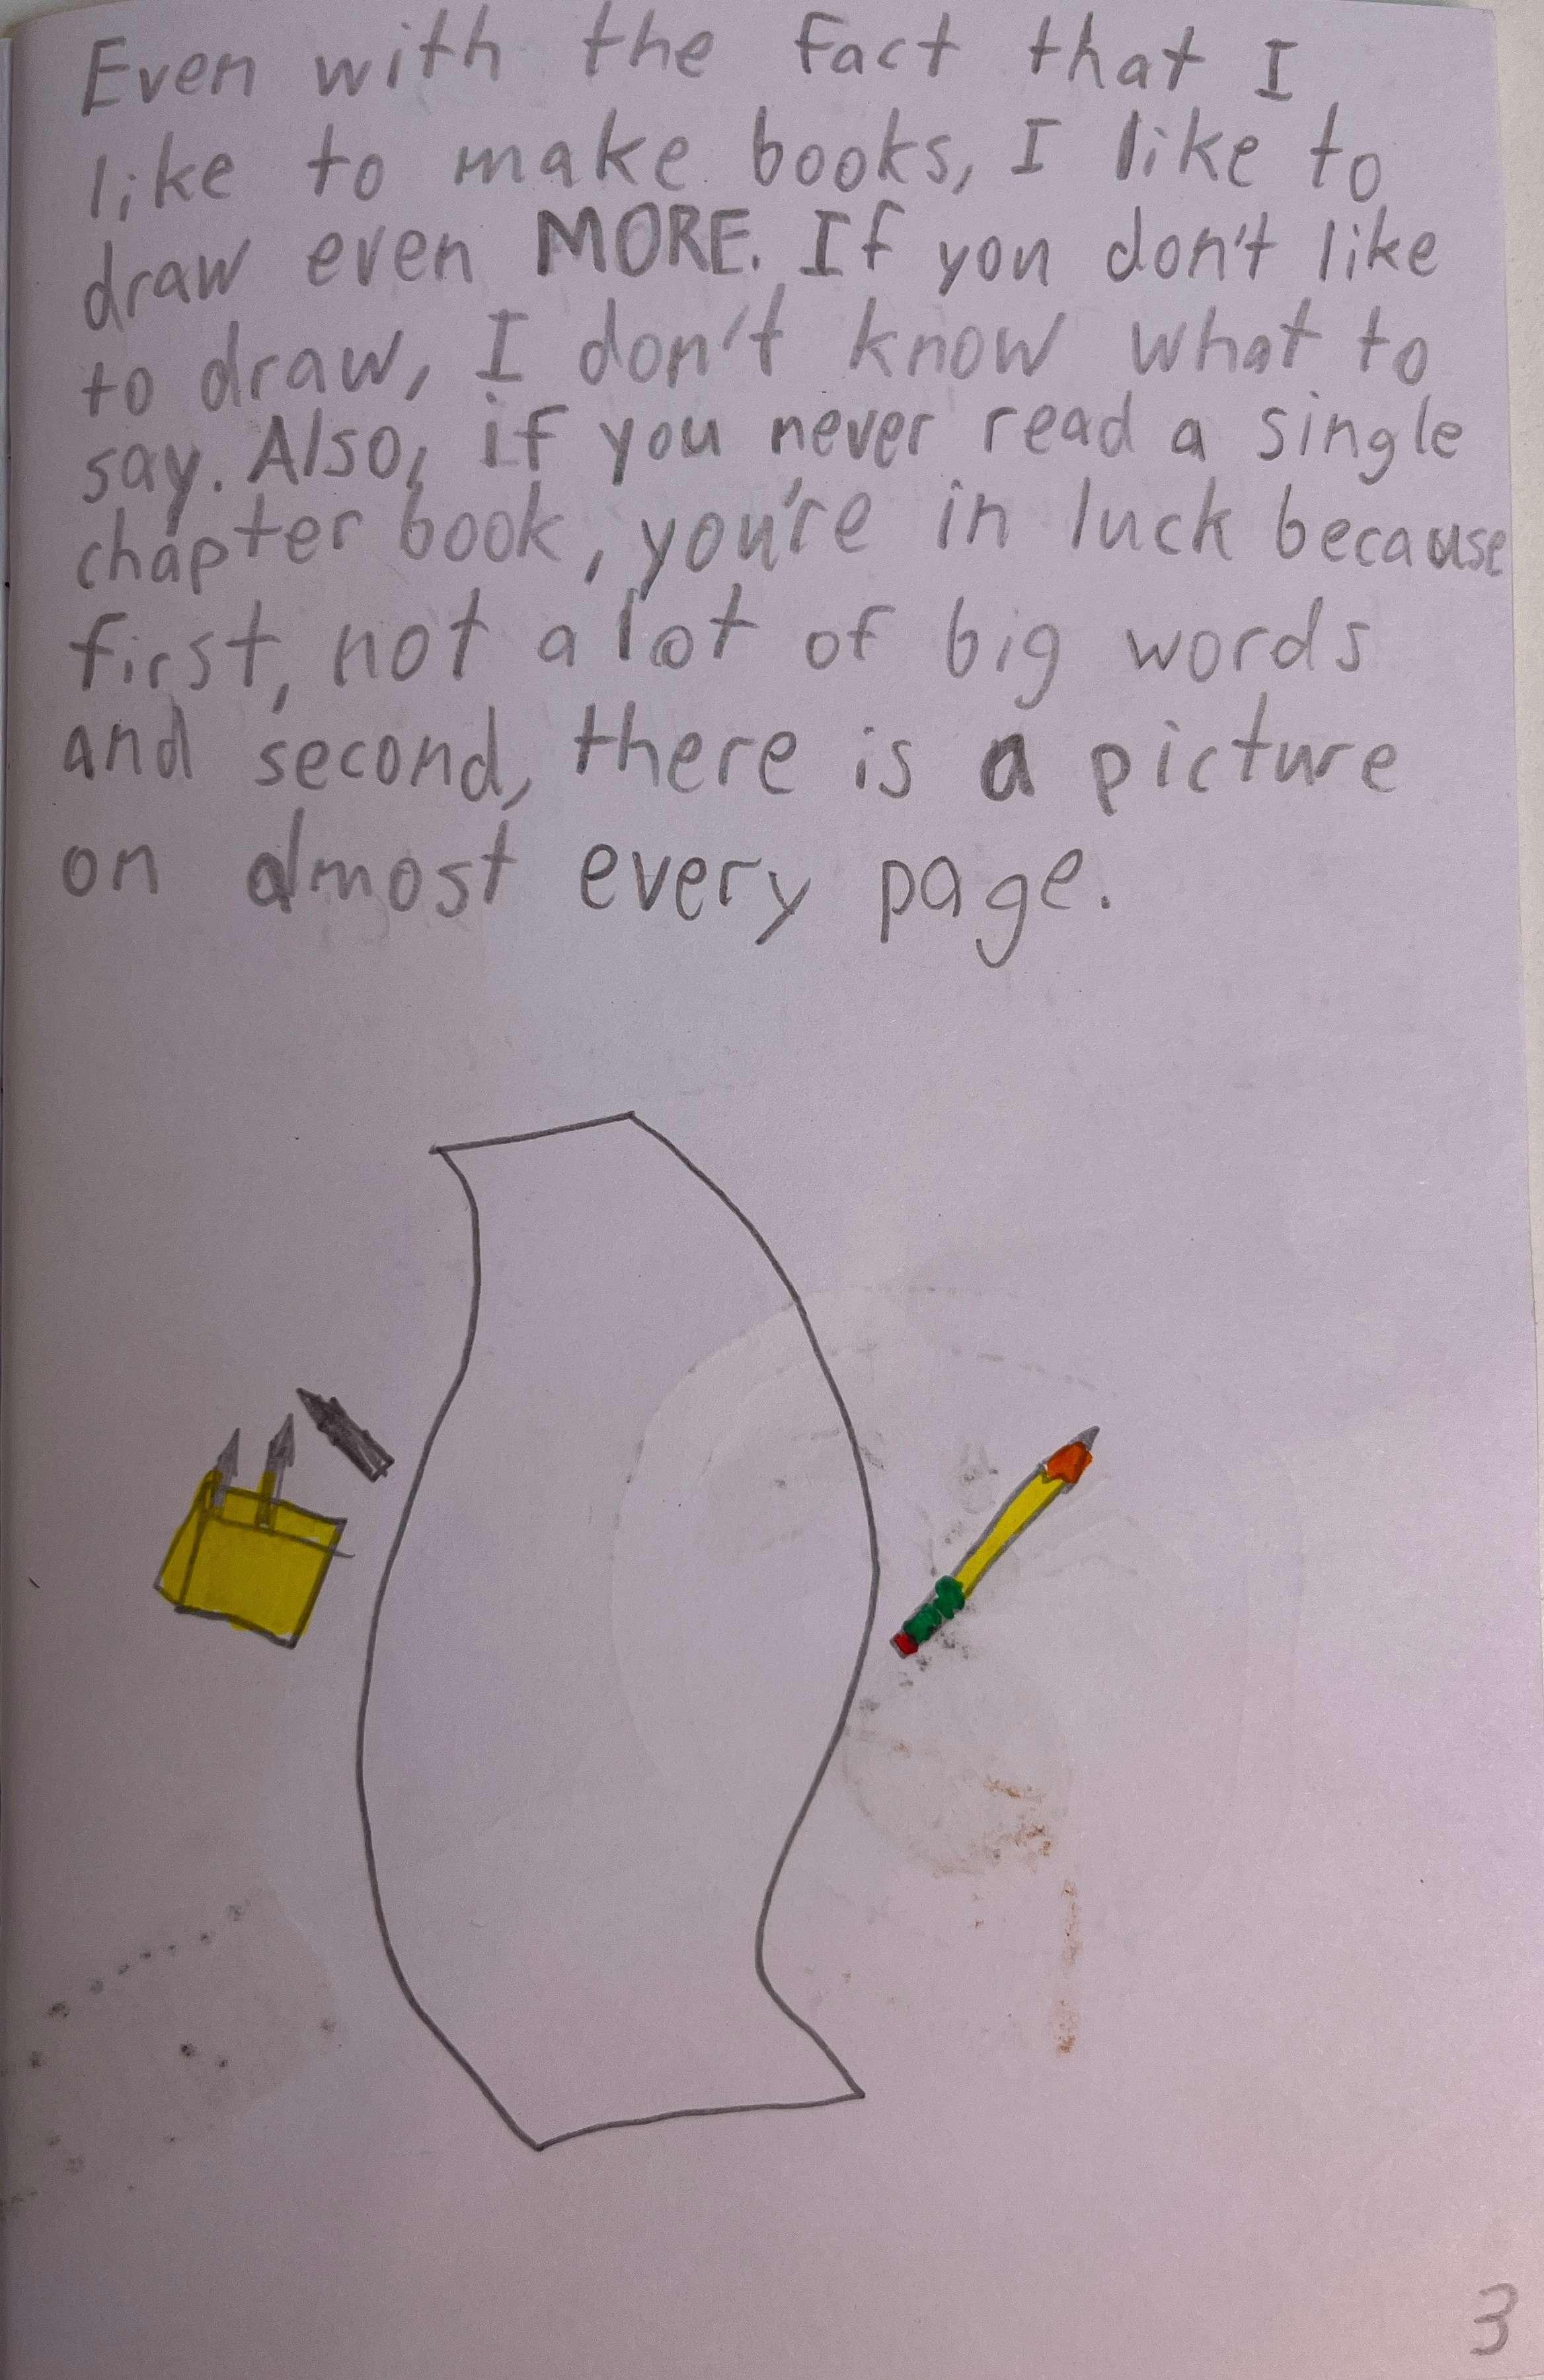 Even with the fact that I
like to make books, I like to
draw even MORE. If you don't like
to draw, I don't know what to
say. Also, if you never read a single
chapter book, you're in luck because
first, not a lot of big words
and second, there is a picture
on almost every page.
3